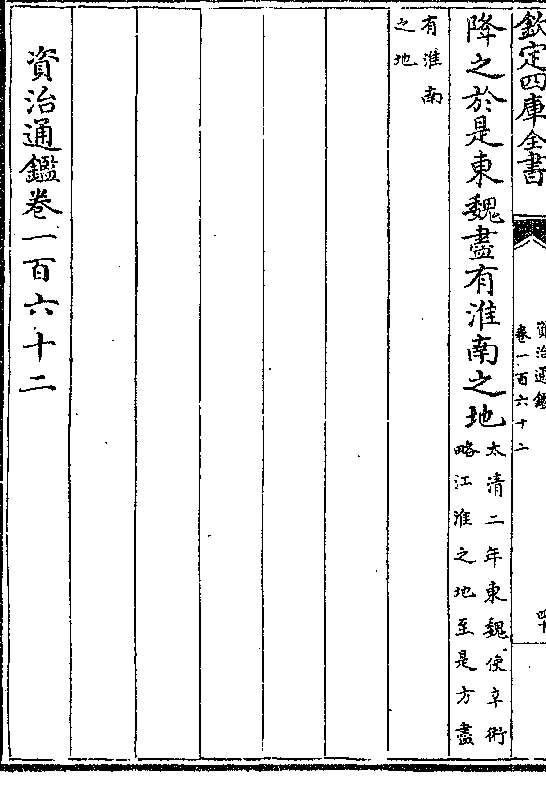 欽定四庫全書
資治通鑑
卷一百六十二
四十
降之於是東魏盡有淮南之地
太清二年東魏使辛術
略江淮之地至是方盡
有淮南
之地
資治通鑑卷一百六十二